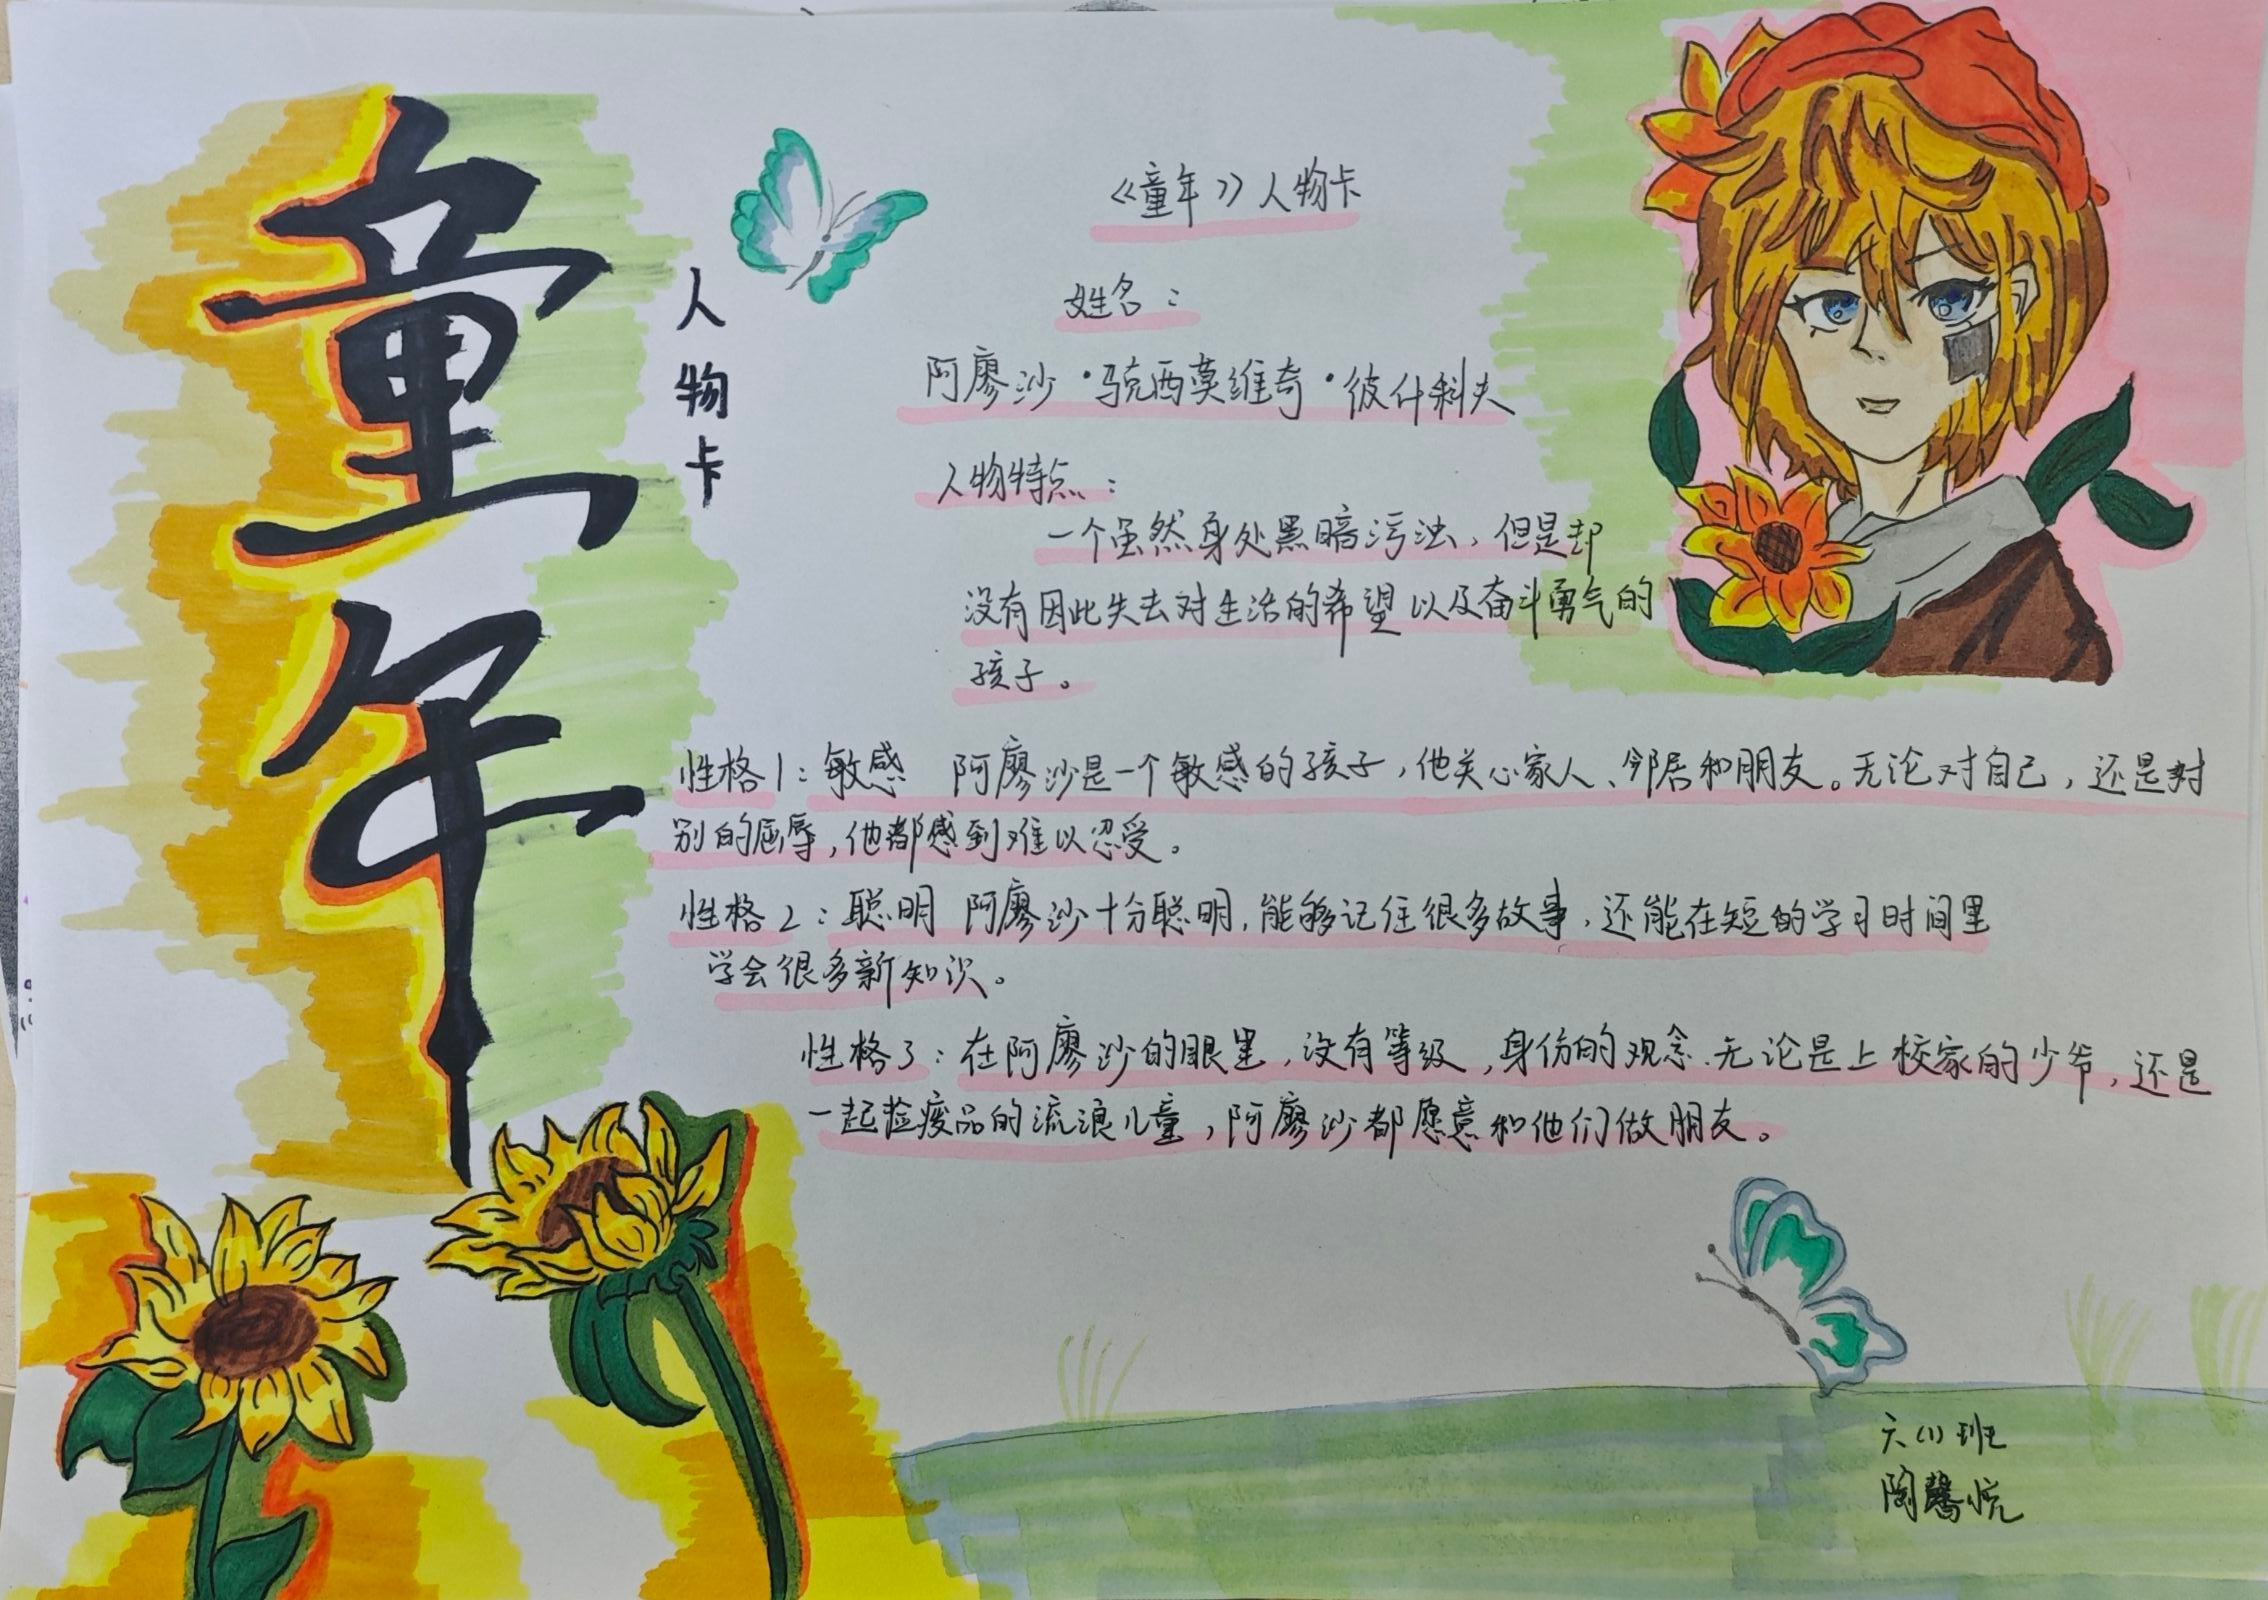 童年
人物卡
《童年》人物卡
姓名：
阿廖沙·马克西莫维奇·彼什科夫
人物特点：
一个虽然身处黑暗污浊，但是却
没有因此失去对生活的希望以及奋斗勇气的
孩子。
性格1：敏感 阿廖沙是一个敏感的孩子，他关心家人、邻居和朋友。无论对自己，还是对
别的屈辱，他都感到难以忍受。
性格2：聪明 阿廖沙十分聪明，能够记住很多故事，还能在短的学习时间里
学会很多新知识。
性格3：在阿廖沙的眼里，没有等级，身份的观念.无论是上校家的少爷，还是
一起捡废品的流浪儿童，阿廖沙都愿意和他们做朋友。
六(1)班
陶馨悦